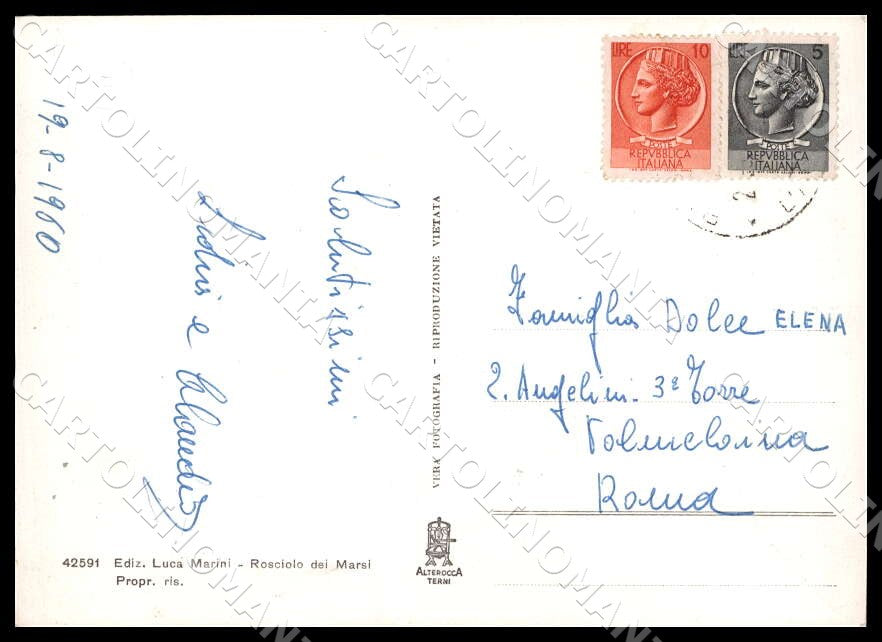 19-8-1960
Salutissimi
e Claudio
VERA FOTOGRAFIA - RIPRODUZIONE VIETATA
LIRE 10
POSTE
REPVBBLICA
ITALIANA
LIRE 5
POSTE
REPVBBLICA
ITALIANA
Famiglia Dolce ELENA
2. Angelini. 3ª Torre
Roma
42591 Ediz. Luca Marini - Rosciolo dei Marsi
Propr. ris.
ALTEROCCA
TERNI
CARTOLINOMANIA